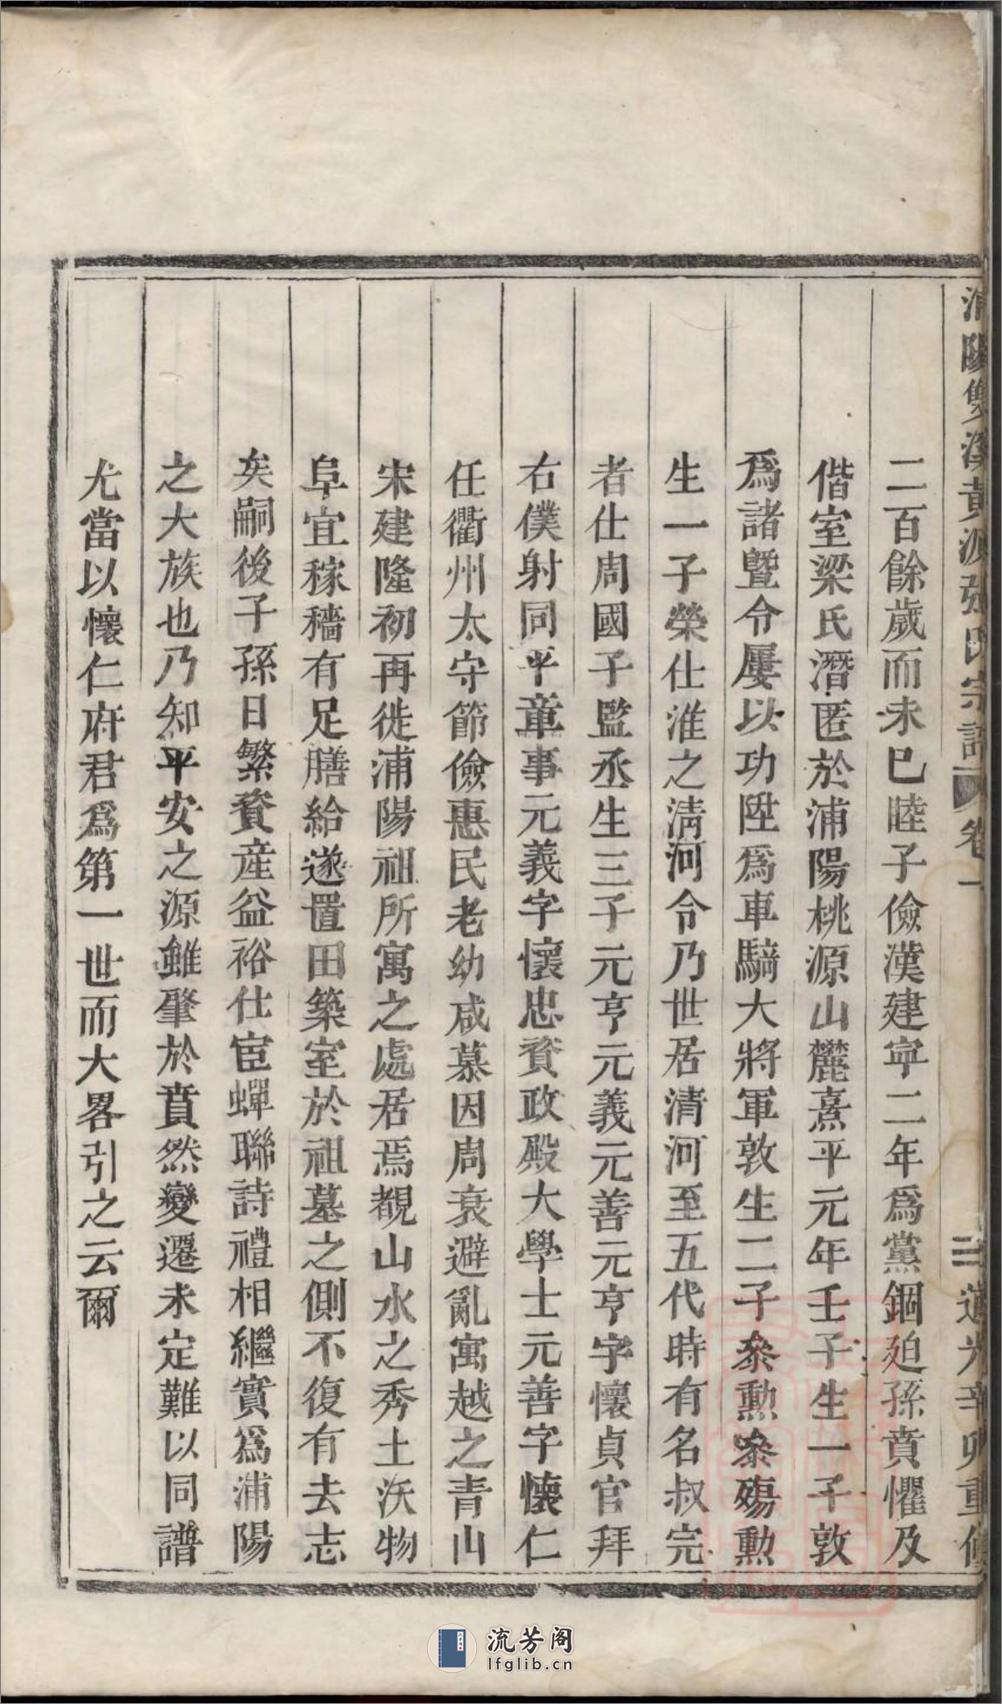 浦陽雙溪黃源張氏宗譜 卷一 道光辛卯重修
二百餘歲而未已睦子儉漢建寧二年爲黨錮廹孫賁懼及
偕室梁氏潛匿於浦陽桃源山麓熹平元年壬子生一子敦
爲諸暨令屢以功陞爲車騎大將軍敦生二子叅勳叅殤勳
生一子榮仕淮之淸河令乃世居清河至五代時有名叔完
者仕周國子監丞生三子元亨元義元善元亨字懷貞官拜
右僕射同平章事元義字懷忠資政殿大學士元善字懷仁
任衢州太守節儉惠民老幼咸慕因周衰避亂寓越之青山
宋建隆初再徙浦陽祖所寓之處居焉覩山水之秀土沃物
阜宜稼穡有足膳給遂置田築室於祖墓之側不復有去志
矣嗣後子孫日繁資産益裕仕宦蟬聯詩禮相繼實爲浦陽
之大族也乃知平安之源雖肇於賁然變遷未定難以同譜
尤當以懷仁府君爲第一世而大畧引之云爾
流芳阁
lfglib.cn